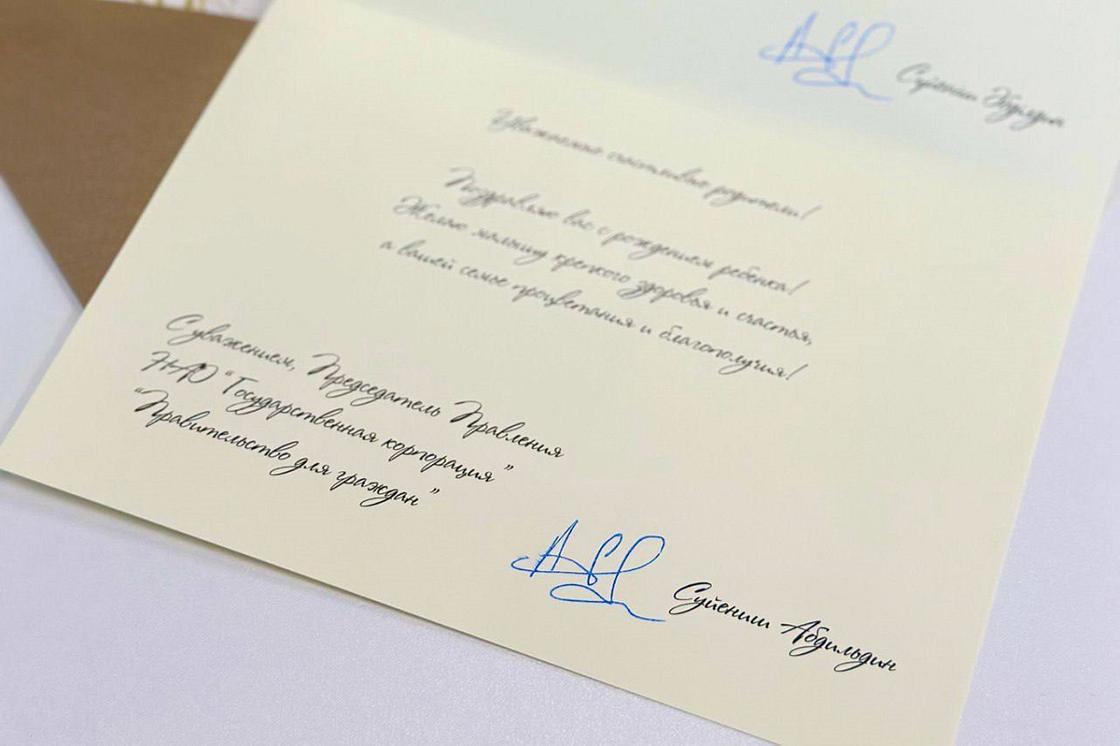 Суйениш Әбділдин
Уважаемые счастливые родители!
Поздравляю вас с рождением ребенка!
Желаю малышу крепкого здоровья и счастья,
а вашей семье процветания и благополучия!
С уважением, Председатель Правления
НАО “Государственная корпорация”
“Правительство для граждан”
Суйениш Абдильдин